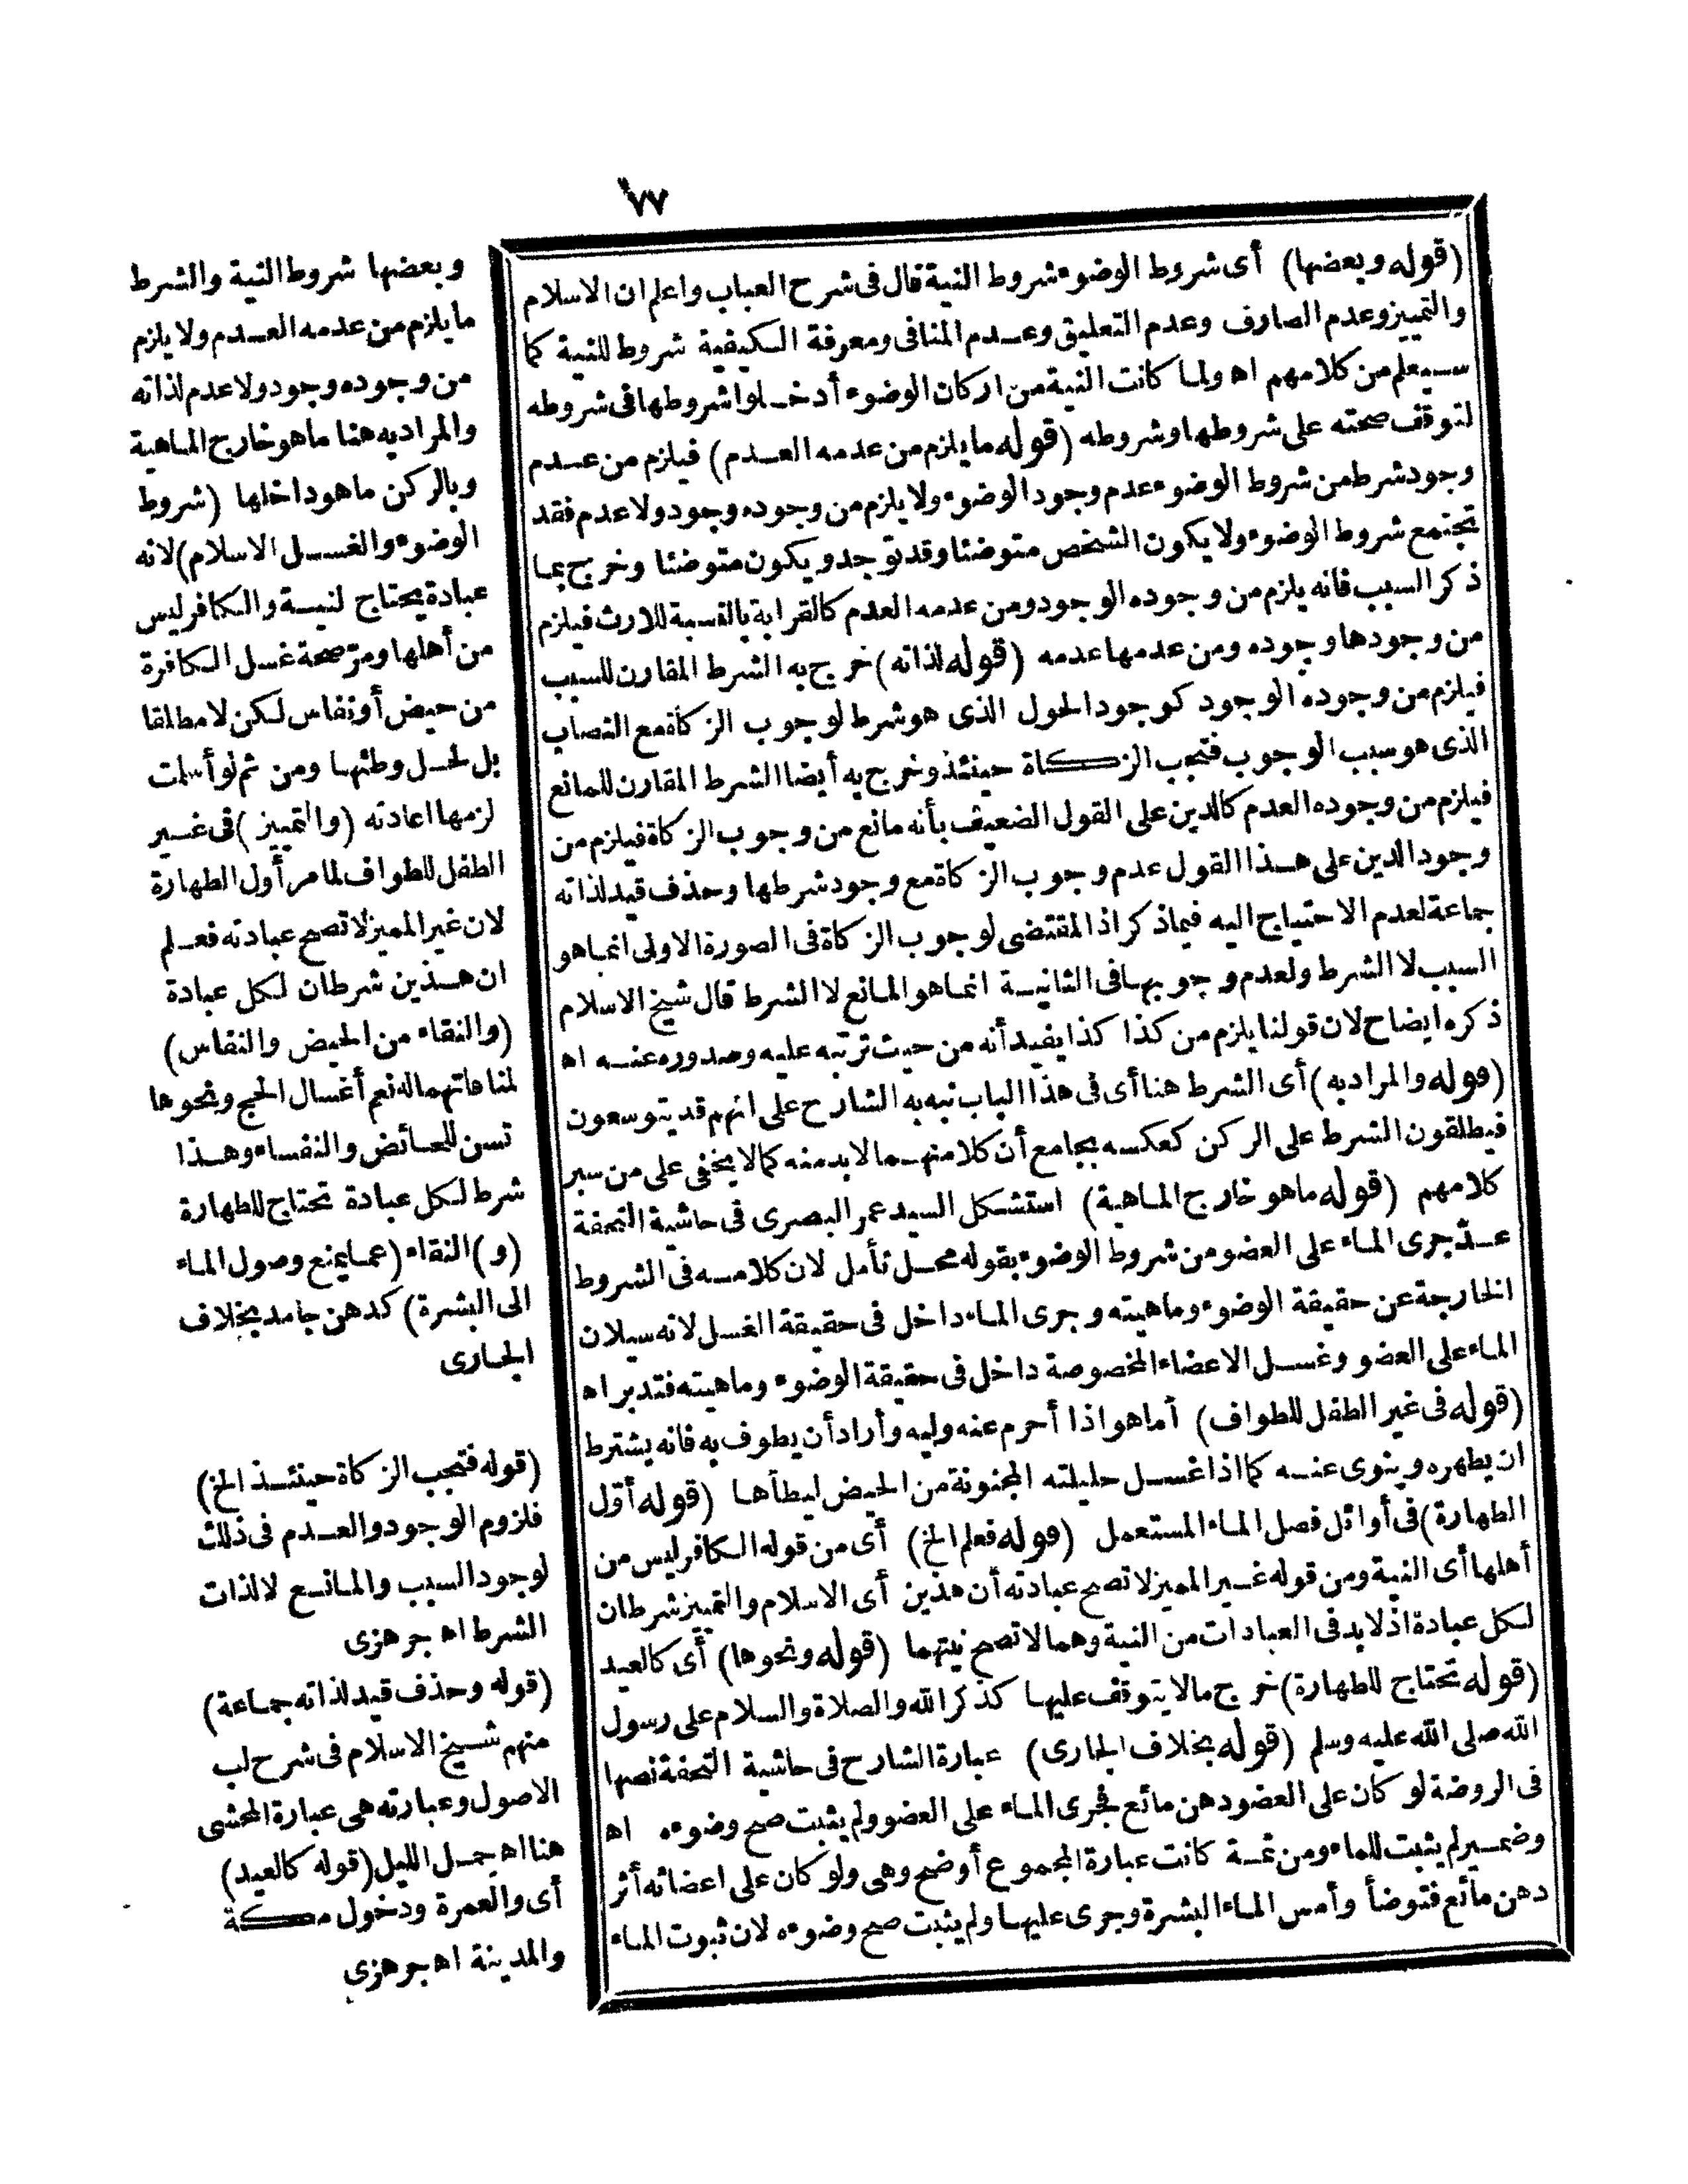 ٧٧
(قوله وبعضها) أى شروط الوضوء شروط النية قال فى شرح العباب واعلم ان الاسلام
والتمييز وعدم الصارف وعدم التعليق وعدم المنافى ومعرفة الكيفية شروط للنية كما
سيعلم من كلامهم اه ولما كانت النية من اركان الوضوء أدخلوا شروطها فى شروطه
لتوقف صحته على شروطها وشروطه (قوله ما يلزم من عدمه العدم) فيلزم من عدم
وجود شرط من شروط الوضوء عدم وجود الوضوء ولا يلزم من وجوده وجود ولا عدم فقد
تجتمع شروط الوضوء ولا يكون الشخص متوضئا وقد توجد ويكون متوضئا وخرج بما
ذكر السبب فانه يلزم من وجوده الوجود ومن عدمه العدم كالقرابة بالنسبة للارث فيلزم
من وجودها وجوده ومن عدمها عدمه (قوله لذاته) خرج به الشرط المقارن للسبب
فيلزم من وجوده الوجود كوجود الحول الذى هو شرط لوجوب الزكاة مع النصاب
الذى هو سبب الوجوب فتجب الزكاة حينئذ وخرج به أيضا الشرط المقارن للمانع
فيلزم من وجوده العدم كالدين على القول الضعيف بأنه مانع من وجوب الزكاة فيلزم من
وجود الدين على هذا القول عدم وجوب الزكاة مع وجود شرطها وحذف قيد لذاته
جماعة لعدم الاحتياج اليه فيما ذكر اذ المقتضى لوجوب الزكاة فى الصورة الاولى انما هو
السبب لا الشرط ولعدم وجوبها فى الثانية انما هو المانع لا الشرط قال شيخ الاسلام
ذكره ايضاح لان قولنا يلزم من كذا كذا يفيد أنه من حيث ترتبه عليه وصدوره عنه اه
(قوله والمراد به) أى الشرط هنا أى فى هذا الباب نبه به الشارح على انهم قد يتوسعون
فيطلقون الشرط على الركن كعكسه بجامع أن كلا منهما لا بد منه كما لا يخفى على من سبر
كلامهم (قوله ما هو خارج الماهية) استشكل السيد عمر البصرى فى حاشية التحفة
عدّ جرى الماء على العضو من شروط الوضوء بقوله محل تأمل لان كلامه فى الشروط
الخارجة عن حقيقة الوضوء وماهيته وجرى الماء داخل فى حقيقة الغسل لانه سيلان
الماء على العضو وغسل الاعضاء المخصوصة داخل فى حقيقة الوضوء وماهيته فتدبر اه
(قوله فى غير الطفل للطواف) أما هو اذا أحرم عنه وليه وأراد أن يطوف به فانه يشترط
ان يطهره وينوى عنه كما اذا غسل حليلته المجنونة من الحيض ليطأها (قوله أوّل
الطهارة) فى أوائل فصل الماء المستعمل (قوله فعلم الخ) أى من قوله الكافر ليس من
أهلها أى النية ومن قوله غير المميز لا تصح عبادته أن هذين أى الاسلام والتمييز شرطان
لكل عبادة اذ لا بد فى العبادات من النية وهما لا تصح نيتهما (قوله ونحوها) أى كالعيد
(قوله تحتاج للطهارة) خرج ما لا يتوقف عليها كذكر الله والصلاة والسلام على رسول
الله صلى الله عليه وسلم (قوله بخلاف الجارى) عبارة الشارح فى حاشية التحفة نصها
فى الروضة لو كان على العضو دهن مائع فجرى الماء على العضو ولم يثبت صح وضوءه اه
وضمير لم يثبت للماء ومن ثمة كانت عبارة المجموع أوضح وهى ولو كان على اعضائه أثر
دهن مائع فتوضأ وأمس الماء البشرة وجرى عليها ولم يثبت صح وضوءه لان ثبوت الماء
وبعضها شروط النية والشرط
ما يلزم من عدمه العدم ولا يلزم
من وجوده وجود ولا عدم لذاته
والمراد به هنا ما هو خارج الماهية
وبالركن ما هو داخلها (شروط
الوضوء والغسل الاسلام) لانه
عبادة يحتاج لنية والكافر ليس
من أهلها ومرّ صحة غسل الكافرة
من حيض أو نفاس لكن لا مطلقا
بل لحل وطئها ومن ثم لو أسلمت
لزمها اعادته (والتمييز) فى غير
الطفل للطواف لما مر أول الطهارة
لان غير المميز لا تصح عبادته فعلم
ان هذين شرطان لكل عبادة
(والنقاء من الحيض والنفاس)
لمنافاتهما له نعم أغسال الحج ونحوها
تسن للحائض والنفساء وهذا
شرط لكل عبادة تحتاج للطهارة
(و) النقاء (عما يمنع وصول الماء
الى البشرة) كدهن جامد بخلاف
الجارى
(قوله فتجب الزكاة حينئذ الخ)
فلزوم الوجود والعدم فى ذلك
لوجود السبب والمانع لا لذات
الشرط اه جرهزى
(قوله وحذف قيد لذاته جماعة)
منهم شيخ الاسلام فى شرح لب
الاصول وعبارته هى عبارة المحشى
هنا اه جمل الليل (قوله كالعيد)
أى والعمرة ودخول مكة
والمدينة اه جرهزى